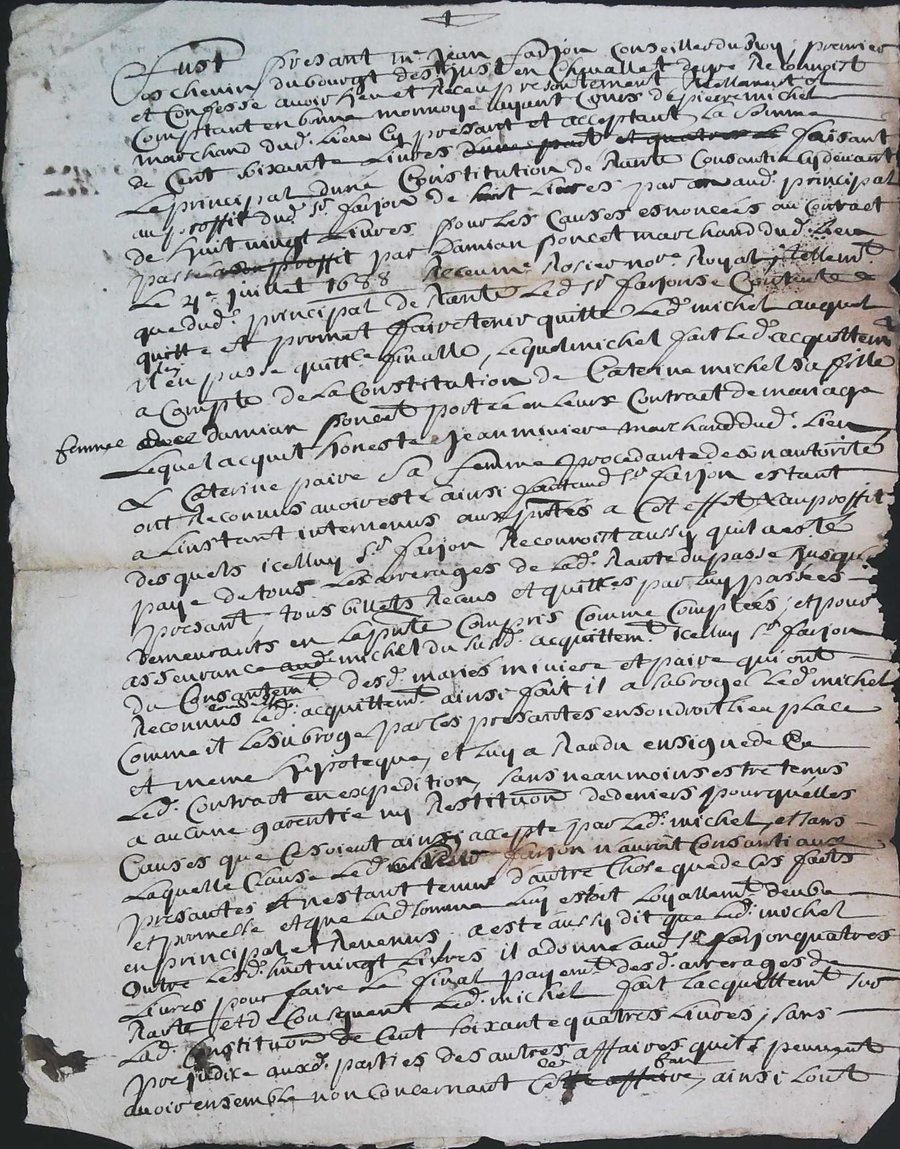 Fust presant Mr Jean farjon Conseiller du Roy, premier
au chemin du bourgt de st Just en Chevallet de gre Recoignoist
et Confesse avoir heu et Receu presentement Reellement et
Comptant en bonne monnoye ayant Cours de pierre michel
marchand dud. Lieu Cy presant et acceptant La Somme
de Cent soixante Livres faisant
Le principal dune Constitution de Rante Consantie Cy devant
au proffit dud. Sr farjon de huit Livres par an aud. principal
de huit vingt Livres pour Les Causes esnoncées au Contract
passé par Damian poncet marchand dud. Lieu
Le 4e juillet 1688 Receu me Rosier nore Royal, tellemt
que dud. principal de Rante Led. Sr farjon se Contente
quitte et promet faire tenir quitte Led. michel auquel
il en passe quitte finalle, Lequel michel fait Led. acquittemt
a Compte de La Constitution de Caterine michel sa fille
femme Damian poncet portée en Leurs Contract de mariage
Lequel acquit honeste Jean miniere marchand dud. Lieu
& Caterine paire Sa femme procedante de son autorité
ont Reconnus avoir esté ainsi fait aud. Sr farjon estant
a Linstant intervenus aux pntes a Cet effet, & au proffit
desquels icelluy Sr farjon Reconnoit aussy quil a esté
payé de tous Les arrerages de Lad. Rante du passé Jusqua
presant, tous billets Receus et quittes par Luy passées
demeurants en Lapnte Compris Comme Comptées, et pour
asseurance aud. michel du susd. acquittemt icelluy Sr farjon
Du Consantemt desd. mariés miniere et paire qui ont
Reconnus Led. acquittemt ainsi fait il a subrogé Led. michel
Comme il Le subroge par Les presantes en son droit Lieu place
et meme hipoteque, et Luy a Randu en signe de Ce
Led. Contract en expedition, sans neanmoins estre tenus
a aucune garentie ny Restitution de deniers pour quelles
Causes que Ce soient ainsi accepté par Led. michel, et sans
Laquelle Clause Led. farjon n'auroit Consanti aux
presantes nestant tenus d'autre Chose que de Ces faits
et promesse et que Lad. somme Luy estoit Loyallemt deube
en principal et Revenus, a esté aussy dit que Led. michel
Outre Lesd. huit vingt Livres il a donné aud. Sr farjon quatres
Livres pour faire Le final payemt desd. arrerages de
Rante et de Consequent Led. michel fait Lacquittemt sur
Lad. Constitution de Cent soixante quatres Livres, sans
prejudice auxd. parties des autres affaires quils peuvent
avoir ensemble non Concernant ainsi Lont